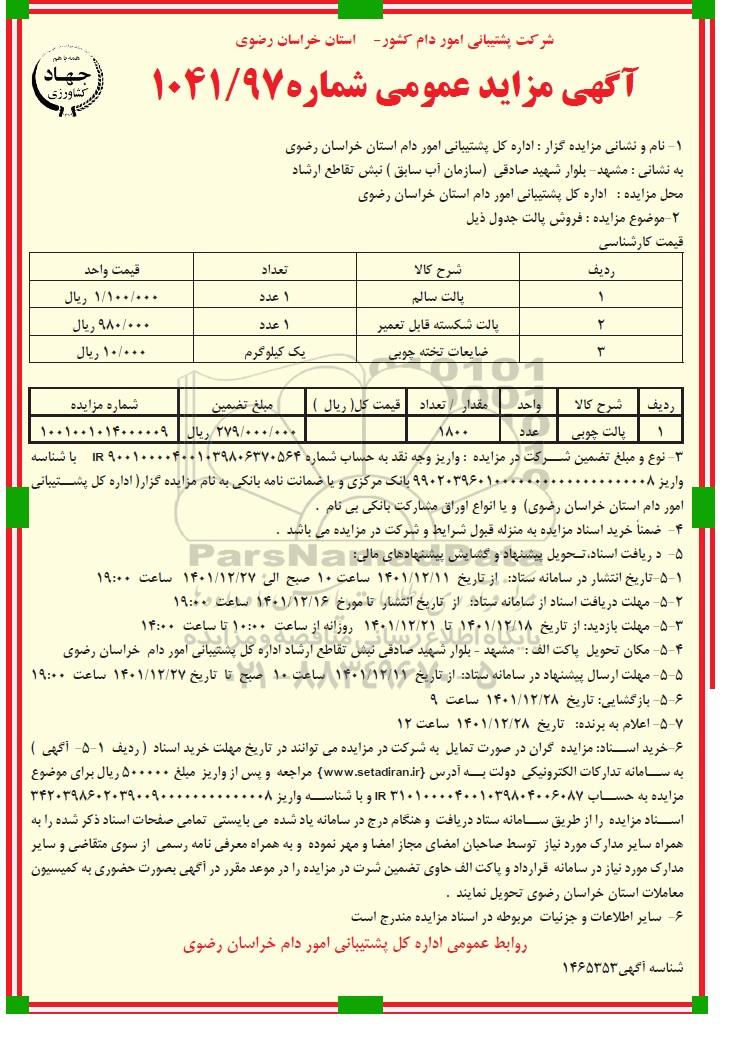 شرکت پشتیبانی امور دام کشور- استان خراسان رضوی
همه با هم
جهاد
کشاورزی
آگهی مزاید عمومی شماره۱۰۴۱/۹۷
۱- نام و نشانی مزایده گزار : اداره کل پشتیبانی امور دام استان خراسان رضوی
به نشانی : مشهد- بلوار شهید صادقی (سازمان آب سابق ) نبش تقاطع ارشاد
محل مزایده : اداره کل پشتیبانی امور دام استان خراسان رضوی
۲-موضوع مزایده : فروش پالت جدول ذیل
قیمت کارشناسی
ردیف شرح کالا تعداد قیمت واحد
۱ پالت سالم ۱ عدد ۱/۱۰۰/۰۰۰ ریال
۲ پالت شکسته قابل تعمیر ۱ عدد ۹۸۰/۰۰۰ ریال
۳ ضایعات تخته چوبی یک کیلوگرم ۱۰/۰۰۰ ریال
ردیف شرح کالا واحد مقدار / تعداد قیمت کل( ریال ) مبلغ تضمین شماره مزایده
۱ پالت چوبی عدد ۱۸۰۰ ۲۷۹/۰۰۰/۰۰۰ ریال ۱۰۰۱۰۰۱۰۱۴۰۰۰۰۰۹
۳- نوع و مبلغ تضمین شـــرکت در مزایده : واریز وجه نقد به حساب شماره IR ۹۰۰۱۰۰۰۰۴۰۰۱۰۳۹۸۰۶۳۷۰۵۶۴ با شناسه
واریز ۹۹۰۲۰۳۹۶۰۱۰۰۰۰۰۰۰۰۰۰۰۰۰۰۰۰۰۰۰۸ بانک مرکزی و یا ضمانت نامه بانکی به نام مزایده گزار( اداره کل پشـــتیبانی
امور دام استان خراسان رضوی) و یا انواع اوراق مشارکت بانکی بی نام .
۴- ضمناً خرید اسناد مزایده به منزله قبول شرایط و شرکت در مزایده می باشد .
۵- دریافت اسناد،تـحـویل پیشنهاد و گشایش پیشنهادهای مالی:
۵-۱-تاریخ انتشار در سامانه ستاد: از تاریخ ۱۴۰۱/۱۲/۱۱ ساعت ۱۰ صبح الی ۱۴۰۱/۱۲/۲۷ ساعت ۱۹:۰۰
۵-۲- مهلت دریافت اسناد از سامانه ستاد: از تاریخ انتشار تا مورخ ۱۴۰۱/۱۲/۱۶ ساعت ۱۹:۰۰
۵-۳- مهلت بازدید: از تاریخ ۱۴۰۱/۱۲/۱۸ تا ۱۴۰۱/۱۲/۲۱ روزانه از ساعت ۱۰:۰۰ تا ساعت ۱۴:۰۰
۵-۴- مکان تحویل پاکت الف : مشهد - بلوار شهید صادقی نبش تقاطع ارشاد اداره کل پشتیبانی امور دام خراسان رضوی
۵-۵- مهلت ارسال پیشنهاد در سامانه ستاد: از تاریخ ۱۴۰۱/۱۲/۱۱ ساعت ۱۰ صبح تا تاریخ ۱۴۰۱/۱۲/۲۷ ساعت ۱۹:۰۰
۵-۶- بازگشایی: تاریخ ۱۴۰۱/۱۲/۲۸ ساعت ۹
۵-۷- اعلام به برنده: تاریخ ۱۴۰۱/۱۲/۲۸ ساعت ۱۲
۶-خرید اســـناد: مزایده گران در صورت تمایل به شرکت در مزایده می توانند در تاریخ مهلت خرید اسناد ( ردیف ۱-۵- آگهی )
به ســـامانه تدارکات الکترونیکی دولت بـــه آدرس {www.setadiran.ir} مراجعه و پس از واریز مبلغ ۵۰۰۰۰۰ ریال برای موضوع
مزایده به حســـاب IR ۳۱۰۱۰۰۰۰۴۰۰۱۰۳۹۸۰۴۰۰۶۰۸۷ و با شناســـه واریز ۳۴۲۰۳۹۸۶۰۲۰۳۹۰۰۹۰۰۰۰۰۰۰۰۰۰۰۰۰۸
اســـناد مزایده را از طریق ســـامانه ستاد دریافت و هنگام درج در سامانه یاد شده می بایستی تمامی صفحات اسناد ذکر شده را به
همراه سایر مدارک مورد نیاز توسط صاحبان امضای مجاز امضا و مهر نموده و به همراه معرفی نامه رسمی از سوی متقاضی و سایر
مدارک مورد نیاز در سامانه قرارداد و پاکت الف حاوی تضمین شرت در مزایده را در موعد مقرر در آگهی بصورت حضوری به کمیسیون
معاملات استان خراسان رضوی تحویل نمایند .
۶- سایر اطلاعات و جزئیات مربوطه در اسناد مزایده مندرج است
روابط عمومی اداره کل پشتیبانی امور دام خراسان رضوی
شناسه آگهی۱۴۶۵۳۵۳
ParsNamadData
پایگاه اطلاع رسانی مناقصه و مزایده
۰۲۱-۸۸۳۴۹۶۷۰-۵